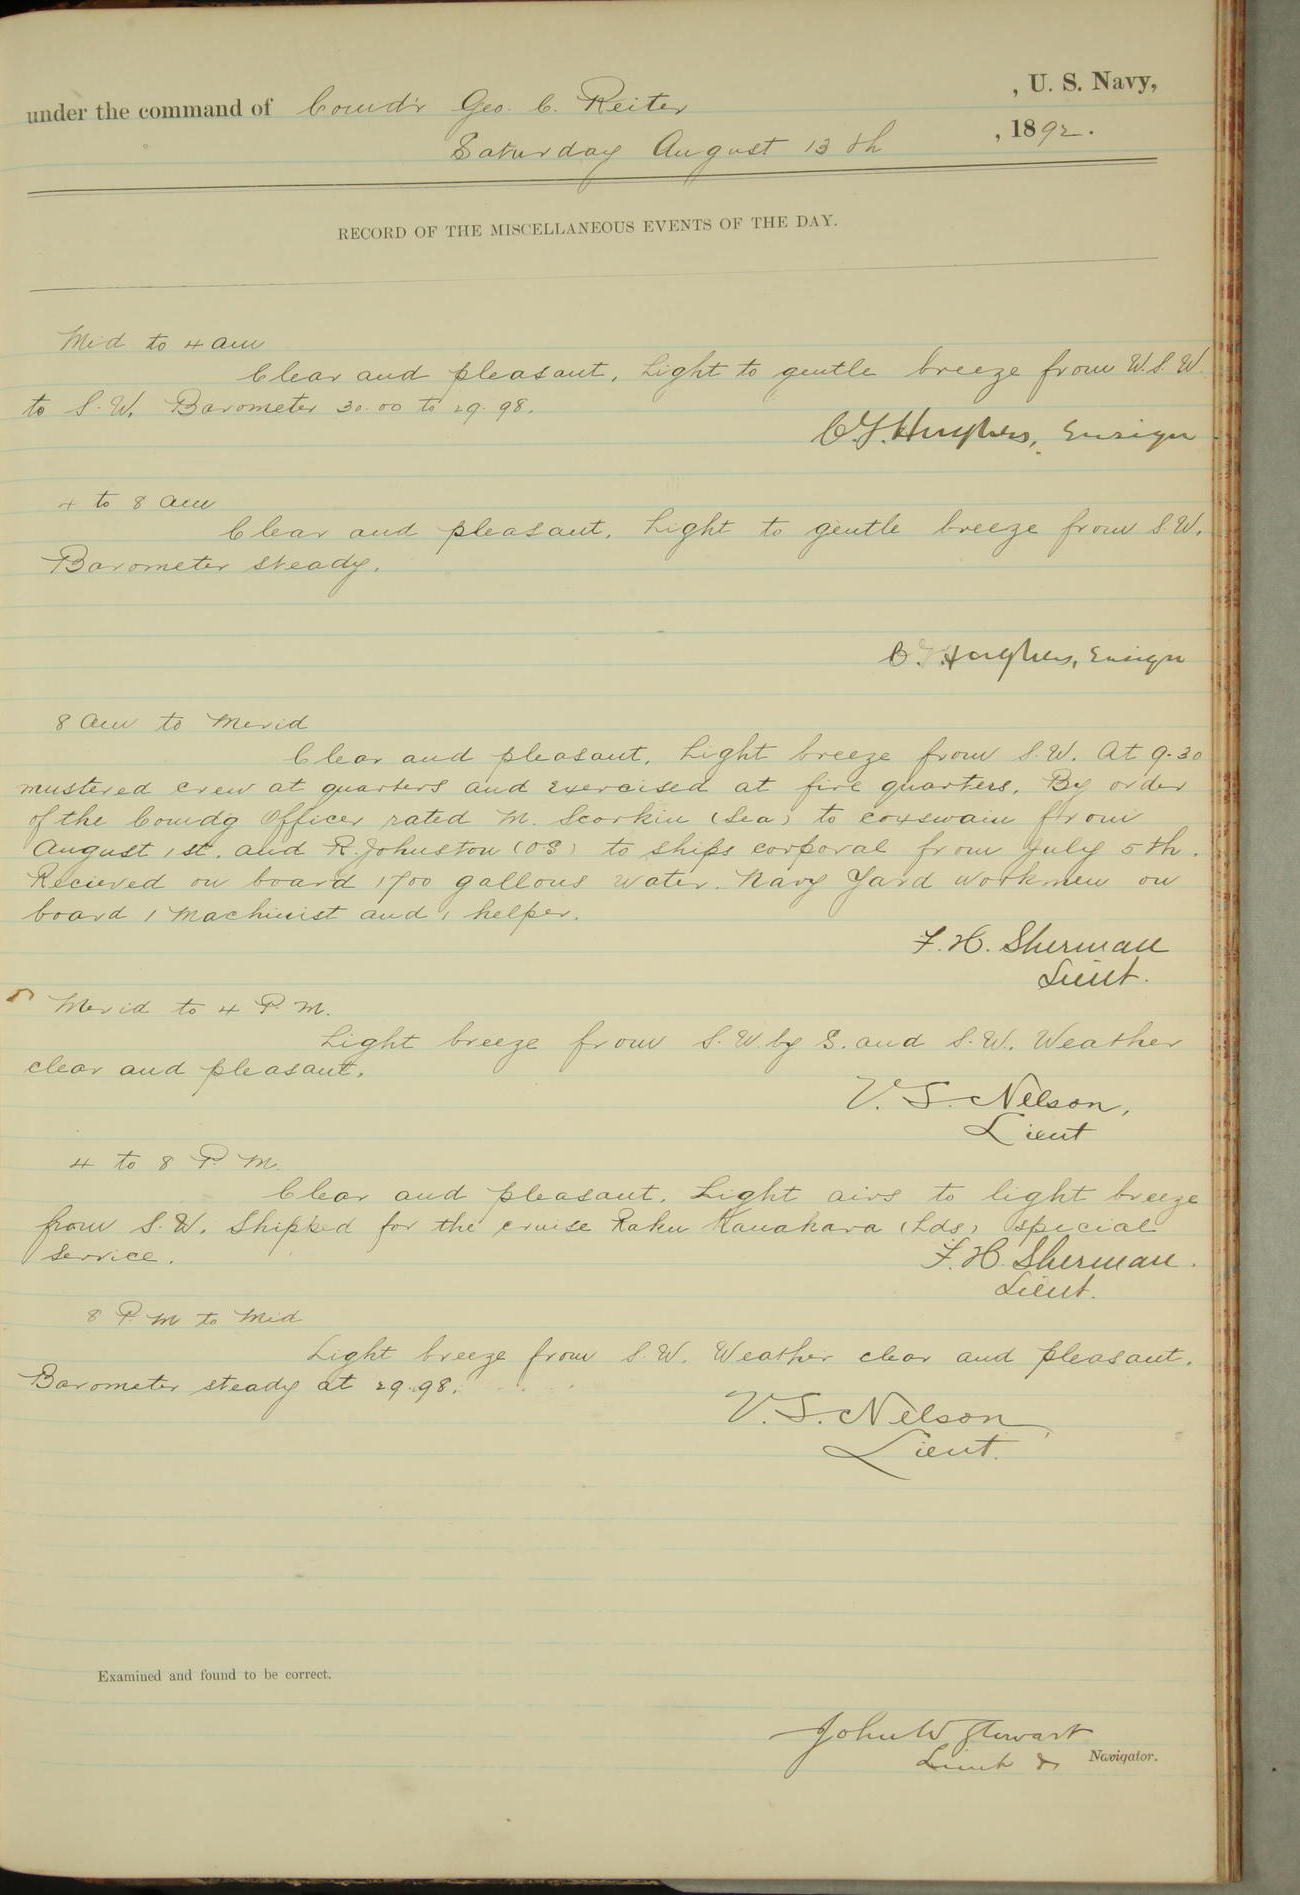 under the command of Comd'r Geo. C. Reiter , U. S. Navy,
Saturday August 13th , 1892.
RECORD OF THE MISCELLANEOUS EVENTS OF THE DAY.
Mid to 4 am
Clear and pleasant, Light to gentle breeze from W.S.W.
to S.W. Barometer 30.00 to 29.98.
C.F. Hughes, Ensign
4 to 8 am
Clear and pleasant. Light to gentle breeze from S.W.
Barometer steady.
C.F. Hughes, Ensign
8 am to Merid
Clear and pleasant. Light breeze from S.W. At 9.30
mustered crew at quarters and exercised at fire quarters. By order
of the Comdg Officer rated M. (Sea) to coxswain from
August 1st. and R. Johnston (OS) to ships corporal from July 5th.
Recieved on board 1700 gallons water. Navy Yard workmen on
board 1 Machinist and 1 helper.
F. H. Sherman
Lieut.
Merid to 4 P.M.
Light breeze from S.W. by S. and S.W. Weather
clear and pleasant.
V. S. Nelson,
Lieut
4 to 8 P.M.
Clear and pleasant. Light airs to light breeze
from S.W. Shipped for the cruise Raku (Lds) special
service.
F. H. Sherman.
Lieut.
8 P.M to Mid
Light breeze from S.W. Weather clear and pleasant.
Barometer steady at 29.98.
V. S. Nelson,
Lieut.
Examined and found to be correct.
John W Stewart
Lieut & Navigator.